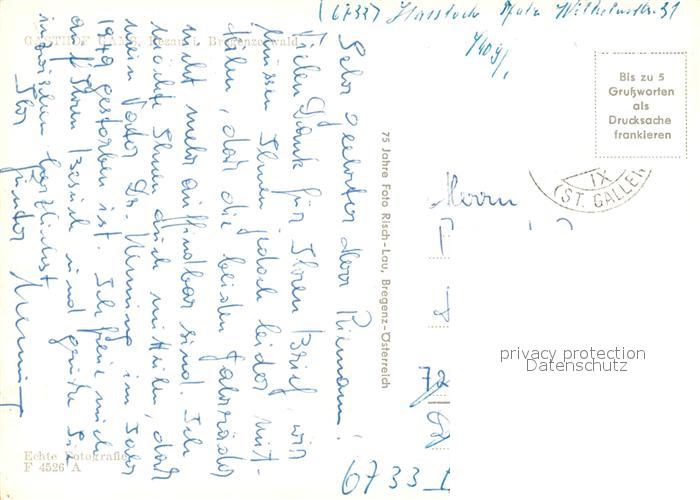 (6733) Hassloch Pfalz Wilhelmstr. 31
GASTHOF GAMS, Bezau i. Bregenzerwald
Bis zu 5
Grußworten
als
Drucksache
frankieren
IX
(ST. GALLEN
Sehr geehrter Herr Riemann!
Vielen Dank für Ihren Brief wir
müssen Ihnen jedoch leider mit-
teilen, daß die beiden Fahrräder
nicht mehr auffindbar sind. Ich
möchte Ihnen auch mitteilen, daß
mein Vater Dr. Henning im Jahr
1949 gestorben ist. Ich freue mich
auf Ihren Besuch und grüße Sie
inzwischen herzlichst
Ihr
Günter
75 Jahre Foto Risch-Lau, Bregenz-Österreich
Herrn
privacy protection
Datenschutz
Echte Fotografie
F 4526 A